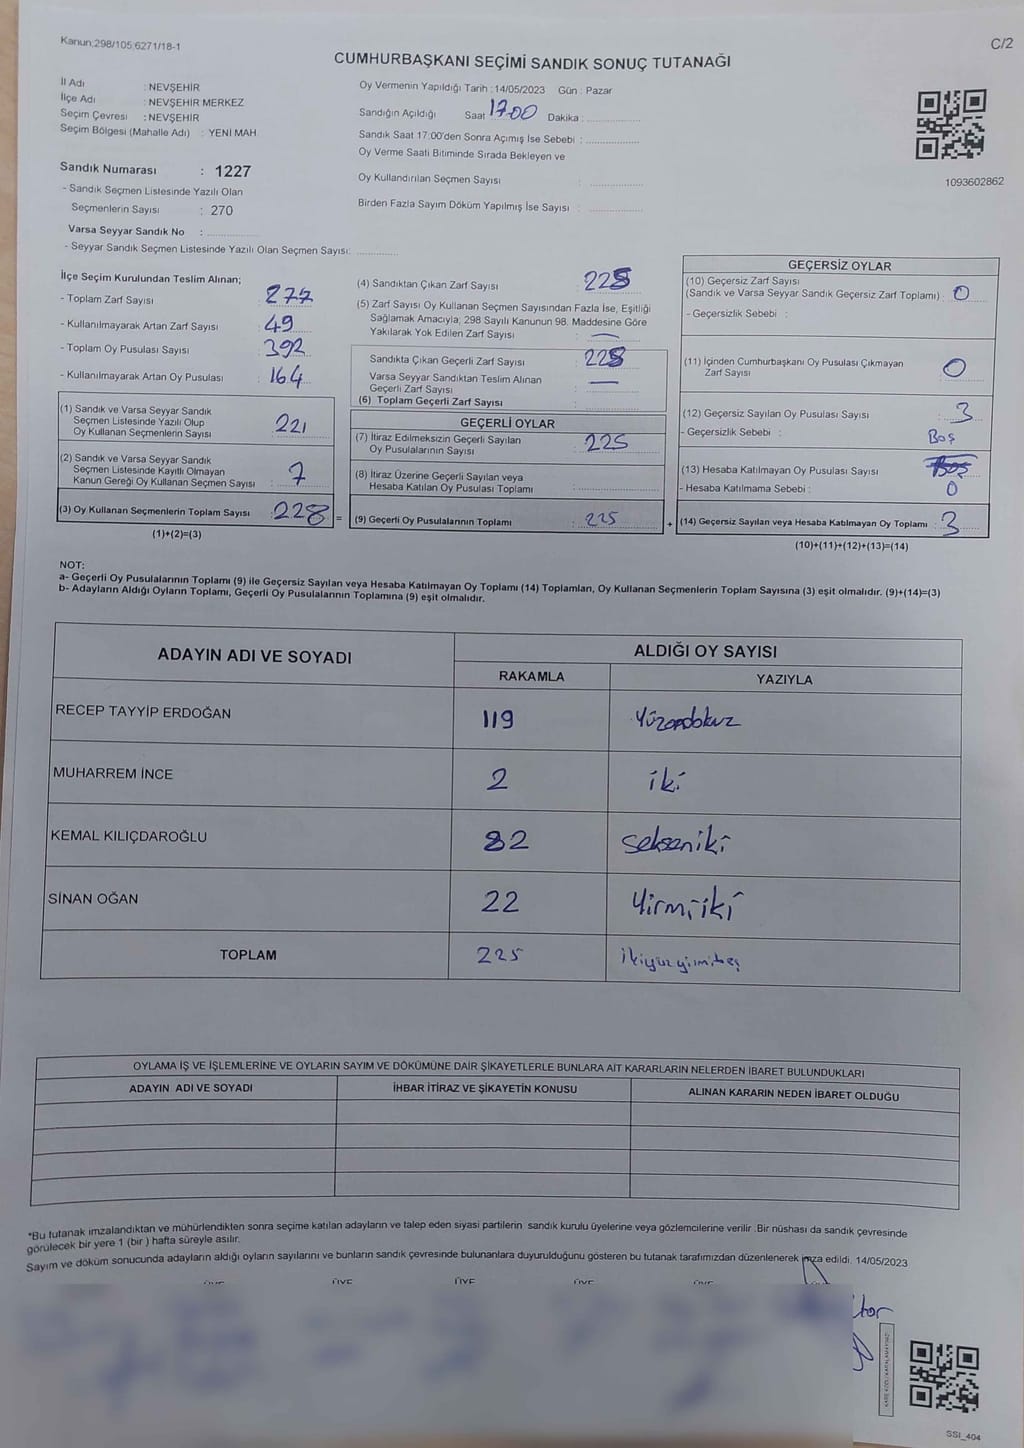 Kanun:298/105,6271/18-1
C/2
CUMHURBAŞKANI SEÇİMİ SANDIK SONUÇ TUTANAĞI
İl Adı : NEVŞEHİR
İlçe Adı : NEVŞEHİR MERKEZ
Seçim Çevresi : NEVŞEHİR
Seçim Bölgesi (Mahalle Adı) : YENİ MAH.
Sandık Numarası : 1227
- Sandık Seçmen Listesinde Yazılı Olan
Seçmenlerin Sayısı : 270
Varsa Seyyar Sandık No :
- Seyyar Sandık Seçmen Listesinde Yazılı Olan Seçmen Sayısı:
Oy Vermenin Yapıldığı Tarih :14/05/2023 Gün : Pazar
Sandığın Açıldığı Saat 17:00 Dakika :
Sandık Saat 17:00'den Sonra Açımış İse Sebebi :
Oy Verme Saati Bitiminde Sırada Bekleyen ve
Oy Kullandırılan Seçmen Sayısı :
Birden Fazla Sayım Döküm Yapılmış İse Sayısı :
1093602862
İlçe Seçim Kurulundan Teslim Alınan;
- Toplam Zarf Sayısı : 277
- Kullanılmayarak Artan Zarf Sayısı : 49
- Toplam Oy Pusulası Sayısı : 392
- Kullanılmayarak Artan Oy Pusulası : 164
(1) Sandık ve Varsa Seyyar Sandık
Seçmen Listesinde Yazılı Olup
Oy Kullanan Seçmenlerin Sayısı : 221
(2) Sandık ve Varsa Seyyar Sandık
Seçmen Listesinde Kayıtlı Olmayan
Kanun Gereği Oy Kullanan Seçmen Sayısı : 7
(3) Oy Kullanan Seçmenlerin Toplam Sayısı : 228 =
(1)+(2)=(3)
(4) Sandıktan Çıkan Zarf Sayısı : 228
(5) Zarf Sayısı Oy Kullanan Seçmen Sayısından Fazla İse, Eşitliği
Sağlamak Amacıyla; 298 Sayılı Kanunun 98. Maddesine Göre
Yakılarak Yok Edilen Zarf Sayısı : —
Sandıkta Çıkan Geçerli Zarf Sayısı : 228
Varsa Seyyar Sandıktan Teslim Alınan
Geçerli Zarf Sayısı : —
(6) Toplam Geçerli Zarf Sayısı :
GEÇERLİ OYLAR
(7) İtiraz Edilmeksizin Geçerli Sayılan
Oy Pusulalarının Sayısı : 225
(8) İtiraz Üzerine Geçerli Sayılan veya
Hesaba Katılan Oy Pusulası Toplamı :
(9) Geçerli Oy Pusulalarının Toplamı : 225 +
GEÇERSİZ OYLAR
(10) Geçersiz Zarf Sayısı
(Sandık ve Varsa Seyyar Sandık Geçersiz Zarf Toplamı) : 0
- Geçersizlik Sebebi :
(11) İçinden Cumhurbaşkanı Oy Pusulası Çıkmayan
Zarf Sayısı : 0
(12) Geçersiz Sayılan Oy Pusulası Sayısı : 3
- Geçersizlik Sebebi : Boş
(13) Hesaba Katılmayan Oy Pusulası Sayısı : Boş
- Hesaba Katılmama Sebebi : 0
(14) Geçersiz Sayılan veya Hesaba Katılmayan Oy Toplamı : 3
(10)+(11)+(12)+(13)=(14)
NOT:
a- Geçerli Oy Pusulalarının Toplamı (9) ile Geçersiz Sayılan veya Hesaba Katılmayan Oy Toplamı (14) Toplamları, Oy Kullanan Seçmenlerin Toplam Sayısına (3) eşit olmalıdır. (9)+(14)=(3)
b- Adayların Aldığı Oyların Toplamı, Geçerli Oy Pusulalarının Toplamına (9) eşit olmalıdır.
ADAYIN ADI VE SOYADI ALDIĞI OY SAYISI
RAKAMLA YAZIYLA
RECEP TAYYİP ERDOĞAN 119 Yüzondokuz
MUHARREM İNCE 2 iki
KEMAL KILIÇDAROĞLU 82 Sekseniki
SİNAN OĞAN 22 Yirmiiki
TOPLAM 225 ikiyüzyirmibeş
OYLAMA İŞ VE İŞLEMLERİNE VE OYLARIN SAYIM VE DÖKÜMÜNE DAİR ŞİKAYETLERLE BUNLARA AİT KARARLARIN NELERDEN İBARET BULUNDUKLARI
ADAYIN ADI VE SOYADI İHBAR İTİRAZ VE ŞİKAYETİN KONUSU ALINAN KARARIN NEDEN İBARET OLDUĞU
*Bu tutanak imzalandıktan ve mühürlendikten sonra seçime katılan adayların ve talep eden siyasi partilerin sandık kurulu üyelerine veya gözlemcilerine verilir .Bir nüshası da sandık çevresinde
görülecek bir yere 1 (bir ) hafta süreyle asılır.
Sayım ve döküm sonucunda adayların aldığı oyların sayılarını ve bunların sandık çevresinde bulunanlara duyurulduğunu gösteren bu tutanak tarafımızdan düzenlenerek imza edildi. 14/05/2023
ÜYE ÜYE ÜYE ÜYE ÜYE
SSI_404